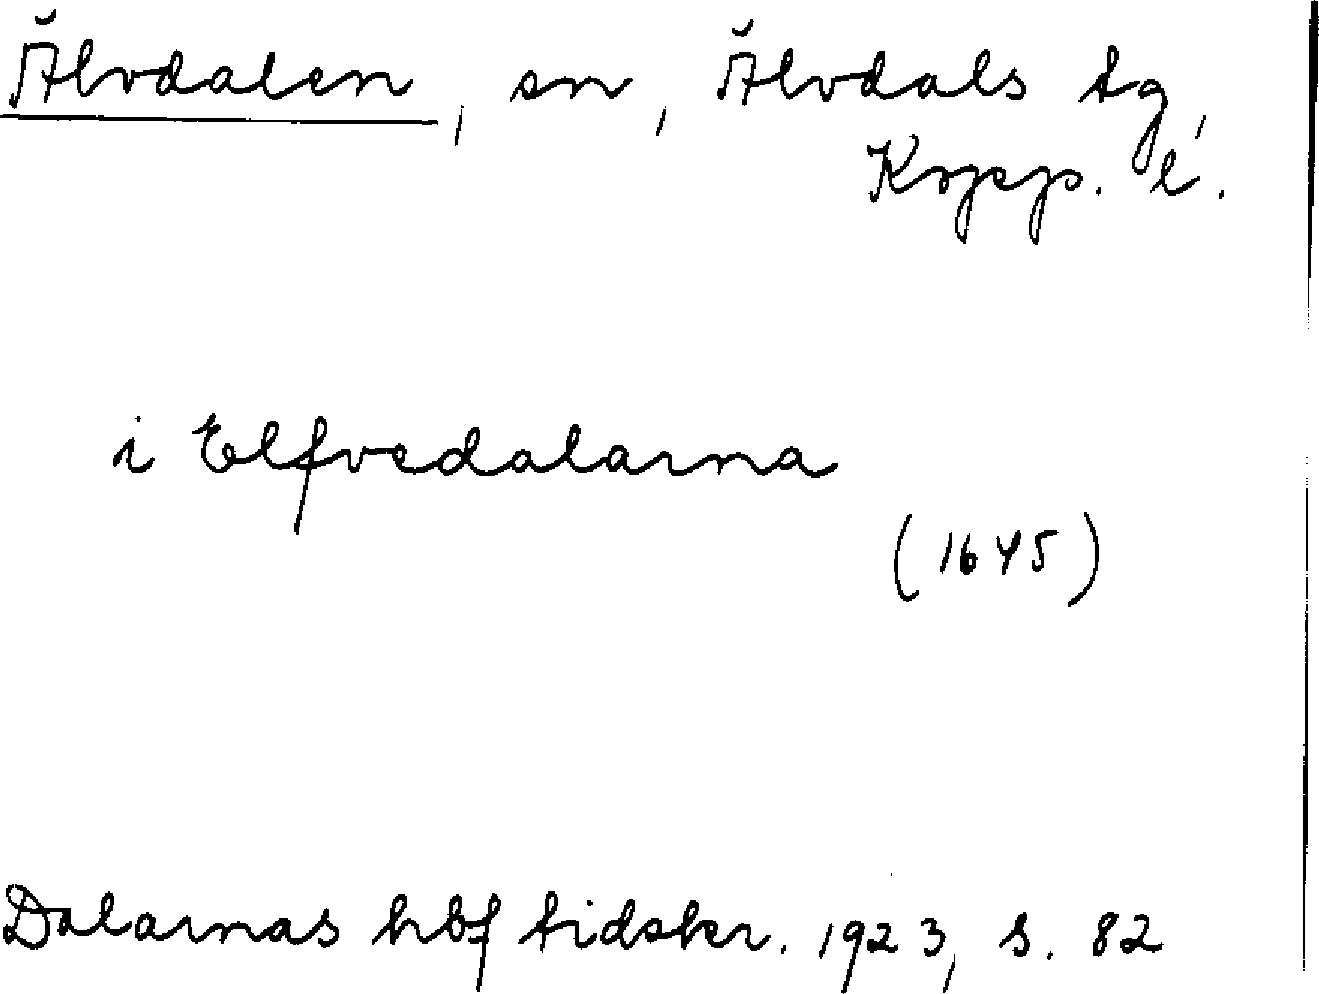 Älvdalen, sn, Älvdals tg,
Kopp. l.
i Elfvedalarna
(1645)
Dalarnas hbf tidskr. 1923, s. 82